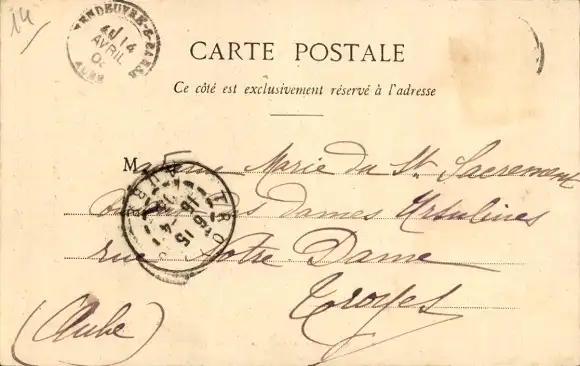 14
VENDEUVRE-S-BARSE
14
AVRIL
AUBE
CARTE POSTALE
Ce côté est exclusivement réservé à l'adresse
Madame Marie du St Sacrement
des Dames Ursulines
rue Notre Dame
Troyes
(Aube)
TROYES
AUBE